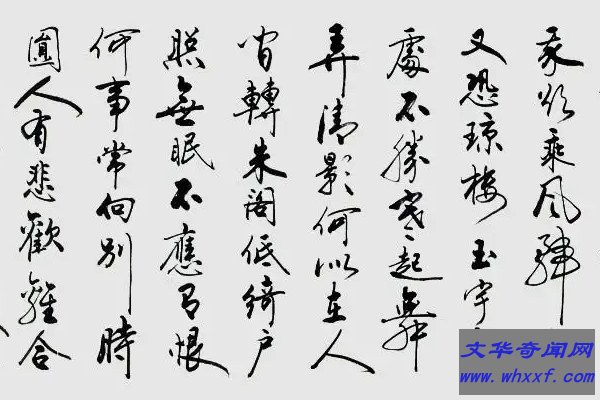 我欲乘风歸
又恐琼楼玉宇
處不勝寒起舞
弄清影何似在人
間轉朱閣低綺户
照無眠不應有恨
何事常向别時
圓人有悲歡離合
文华奇闻网
www.whxxf.com